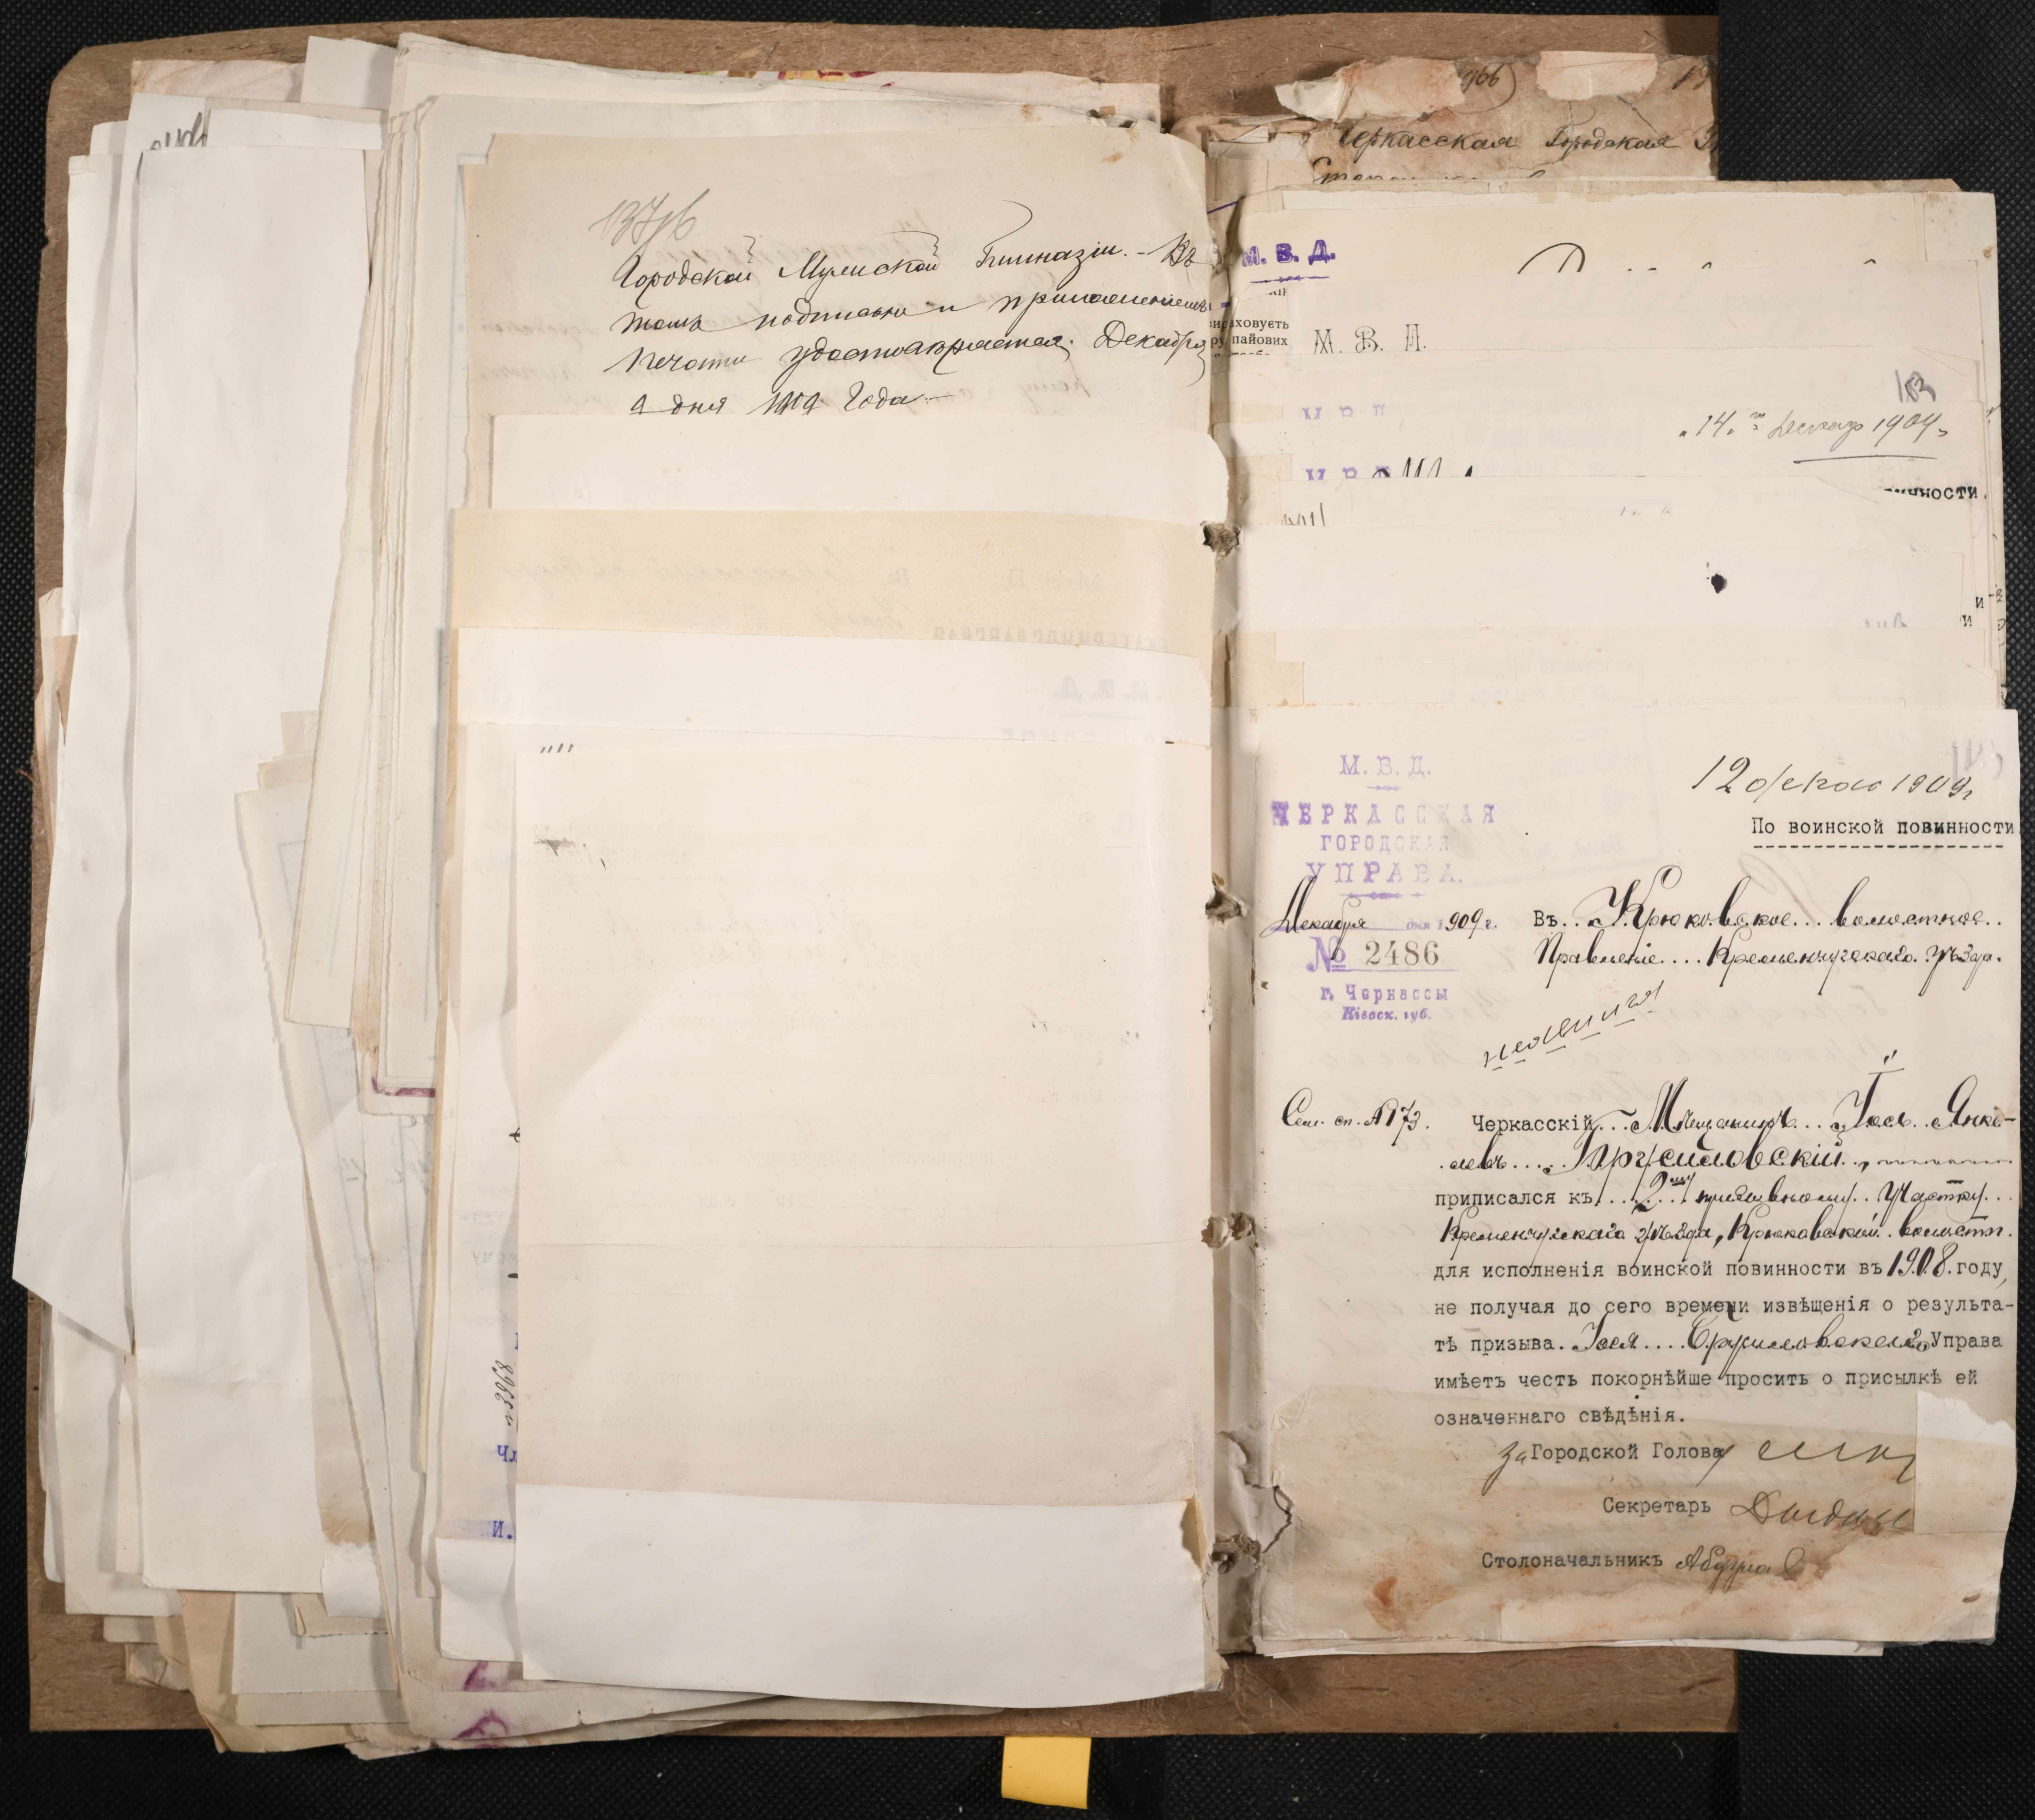 137/б
Городской Мужской Гимназіи. - Въ
томъ подписью и приложеніемъ
печати удостовѣряется. Декабря
9 дня 1909 года
Черкасская Городская
М. В. Д.
раховуєть
ру пайових
М. В. Д.
183
"14" Декабр 1909
М В Д
инности.
и
и
М. В. Д.
ЧЕРКАССКАЯ
ГОРОДСКАЯ
УПРАВА.
Декабря дня 1909 г.
№ 2486
г. Черкассы
Кіевск. губ.
12 декаб 1909 г
По воинской повинности
Въ Крюковское волостное
Правленіе Кременчугскаго уѣзда.
Сем. сп. №173.
Черкасскій Мѣщанинъ Іось Янке-
левъ Бржиловскій,
приписался къ 2му призывному участку
Кременчугскаго уѣзда, Крюковской волости
для исполненія воинской повинности въ 1908 году,
не получая до сего времени извѣщенія о результа-
тѣ призыва Іося Бржиловскаго Управа
имѣетъ честь покорнѣйше просить о присылкѣ ей
означеннаго свѣдѣнія.
за Городской Голова
Секретарь
Столоначальникъ